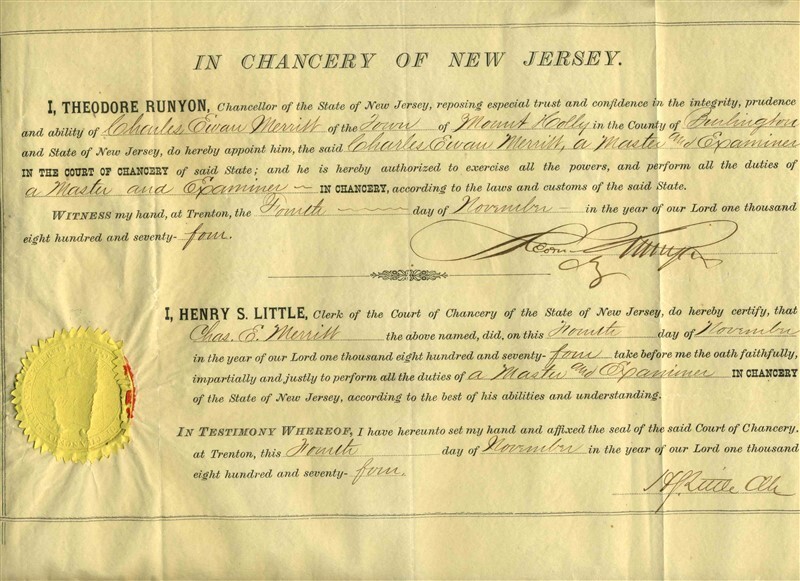 IN CHANCERY OF NEW JERSEY.
I, THEODORE RUNYON, Chancellor of the State of New Jersey, reposing especial trust and confidence in the integrity, prudence
and ability of Charles Ewan Merritt of the Town of Mount Holly in the County of Burlington
and State of New Jersey, do hereby appoint him, the said Charles Ewan Merritt, a Master and Examiner
IN THE COURT OF CHANCERY of said State; and he is hereby authorized to exercise all the powers, and perform all the duties of
a Master and Examiner — IN CHANCERY, according to the laws and customs of the said State.
WITNESS my hand, at Trenton, the Fourth — day of November — in the year of our Lord one thousand
eight hundred and seventy- four.
Theodore Runyon
I, HENRY S. LITTLE, Clerk of the Court of Chancery of the State of New Jersey, do hereby certify, that
Chas. E. Merritt the above named, did, on this Fourth day of November
in the year of our Lord one thousand eight hundred and seventy- four take before me the oath faithfully,
impartially and justly to perform all the duties of a Master and Examiner IN CHANCERY
of the State of New Jersey, according to the best of his abilities and understanding.
IN TESTIMONY WHEREOF, I have hereunto set my hand and affixed the seal of the said Court of Chancery,
at Trenton, this Fourth day of November in the year of our Lord one thousand
eight hundred and seventy- four.
H S Little Clk